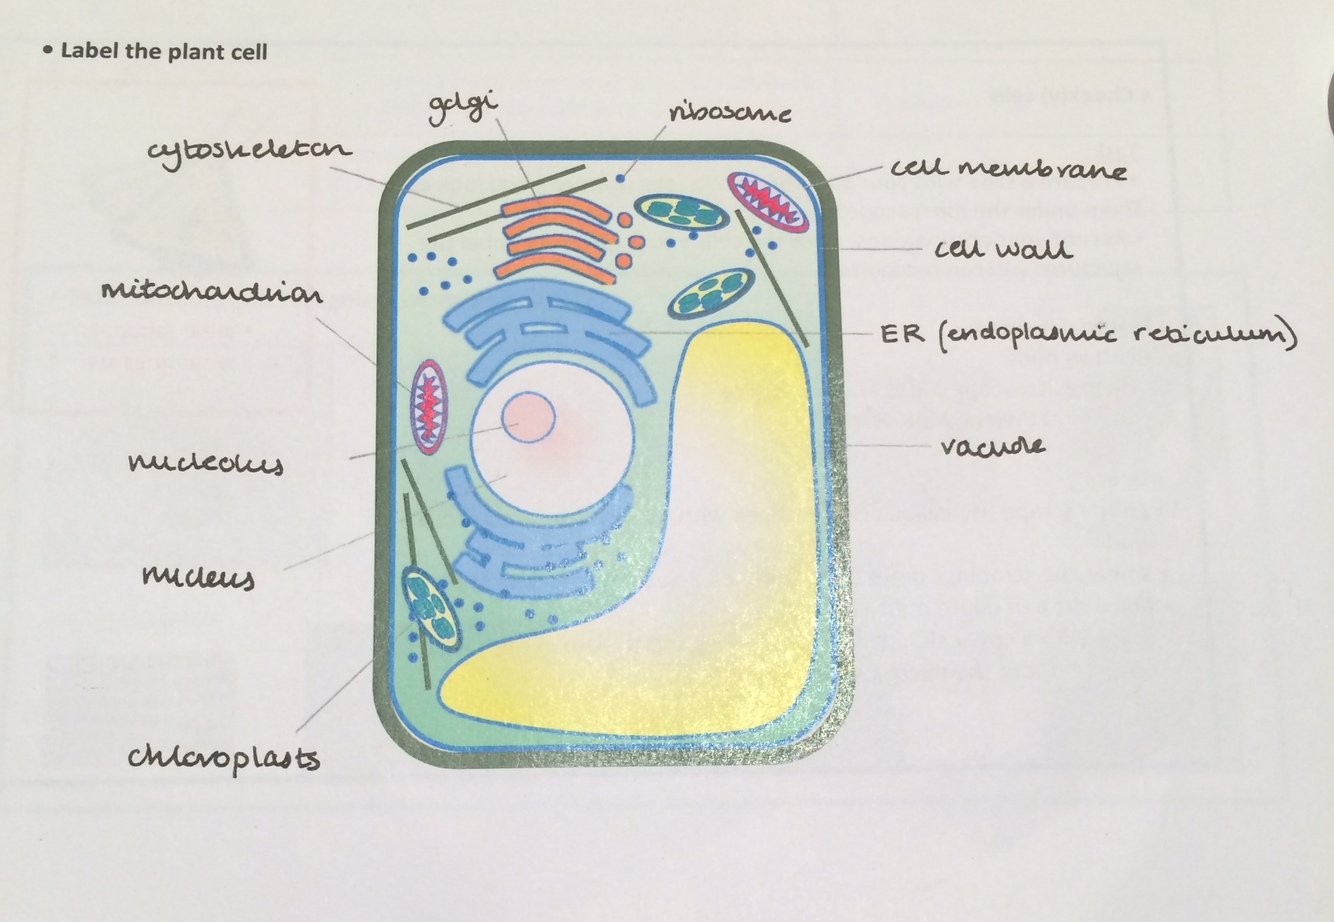 • Label the plant cell
golgi
ribosome
cytoskeleton
cell membrane
cell wall
mitochondrion
ER (endoplasmic reticulum)
vacuole
nucleolus
nucleus
chloroplasts